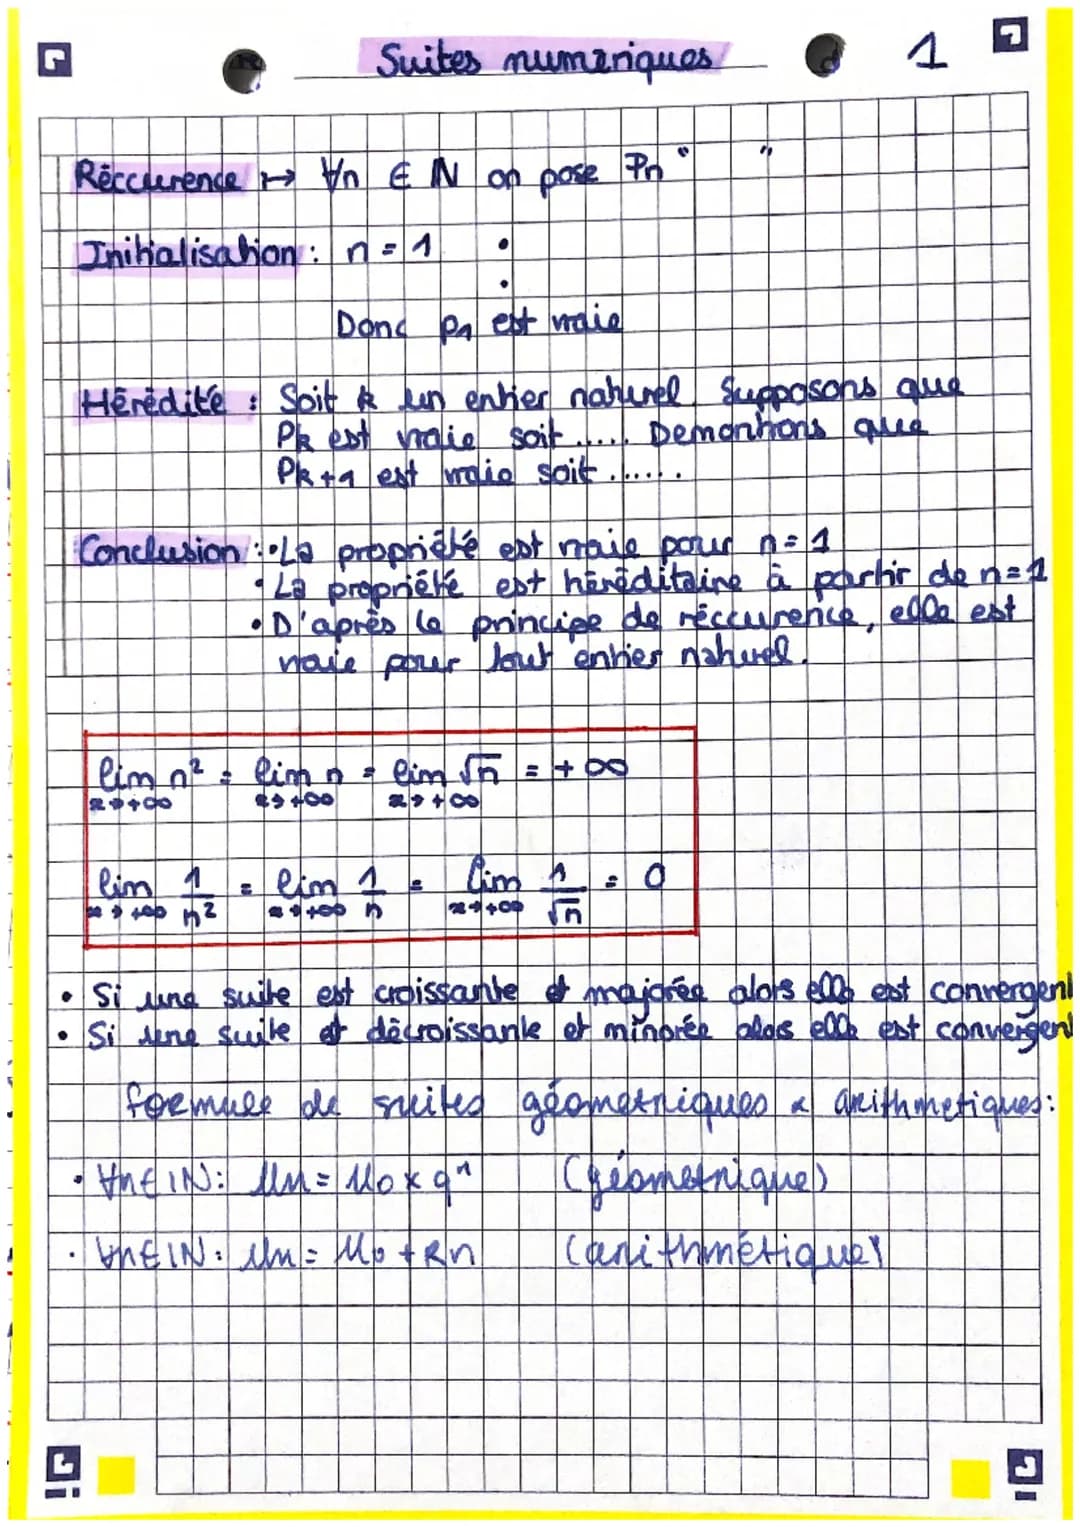 Suites numériques
1
Réccurence ↦ ∀n ∈ ℕ on pose Pn " "
Initialisation : n = 1
Donc p1 est vraie
Hérédité : Soit k un entier naturel. Supposons que
Pk est vraie soit ..... Demontrons que
Pk+1 est vraie soit ......
Conclusion : • La propriété est vraie pour n = 1
• La propriété est héréditaire à partir de n = 1
• D'après le principe de réccurence, elle est
vraie pour tout entier naturel.
lim n² = lim n = lim √n = +∞
x→+∞ x→+∞ x→+∞
lim 1/n² = lim 1/n = lim 1/√n = 0
x→+∞ x→+∞ x→+∞
• Si une suite est croissante et majorée alors elle est convergent
• Si une suite et décroissante et minorée alors elle est convergent
formule de suites géometriques & arithmetiques :
• ∀n ∈ ℕ : Un = U0 × qⁿ (géometrique)
• ∀n ∈ ℕ : Un = U0 + Rn (arithmétique)